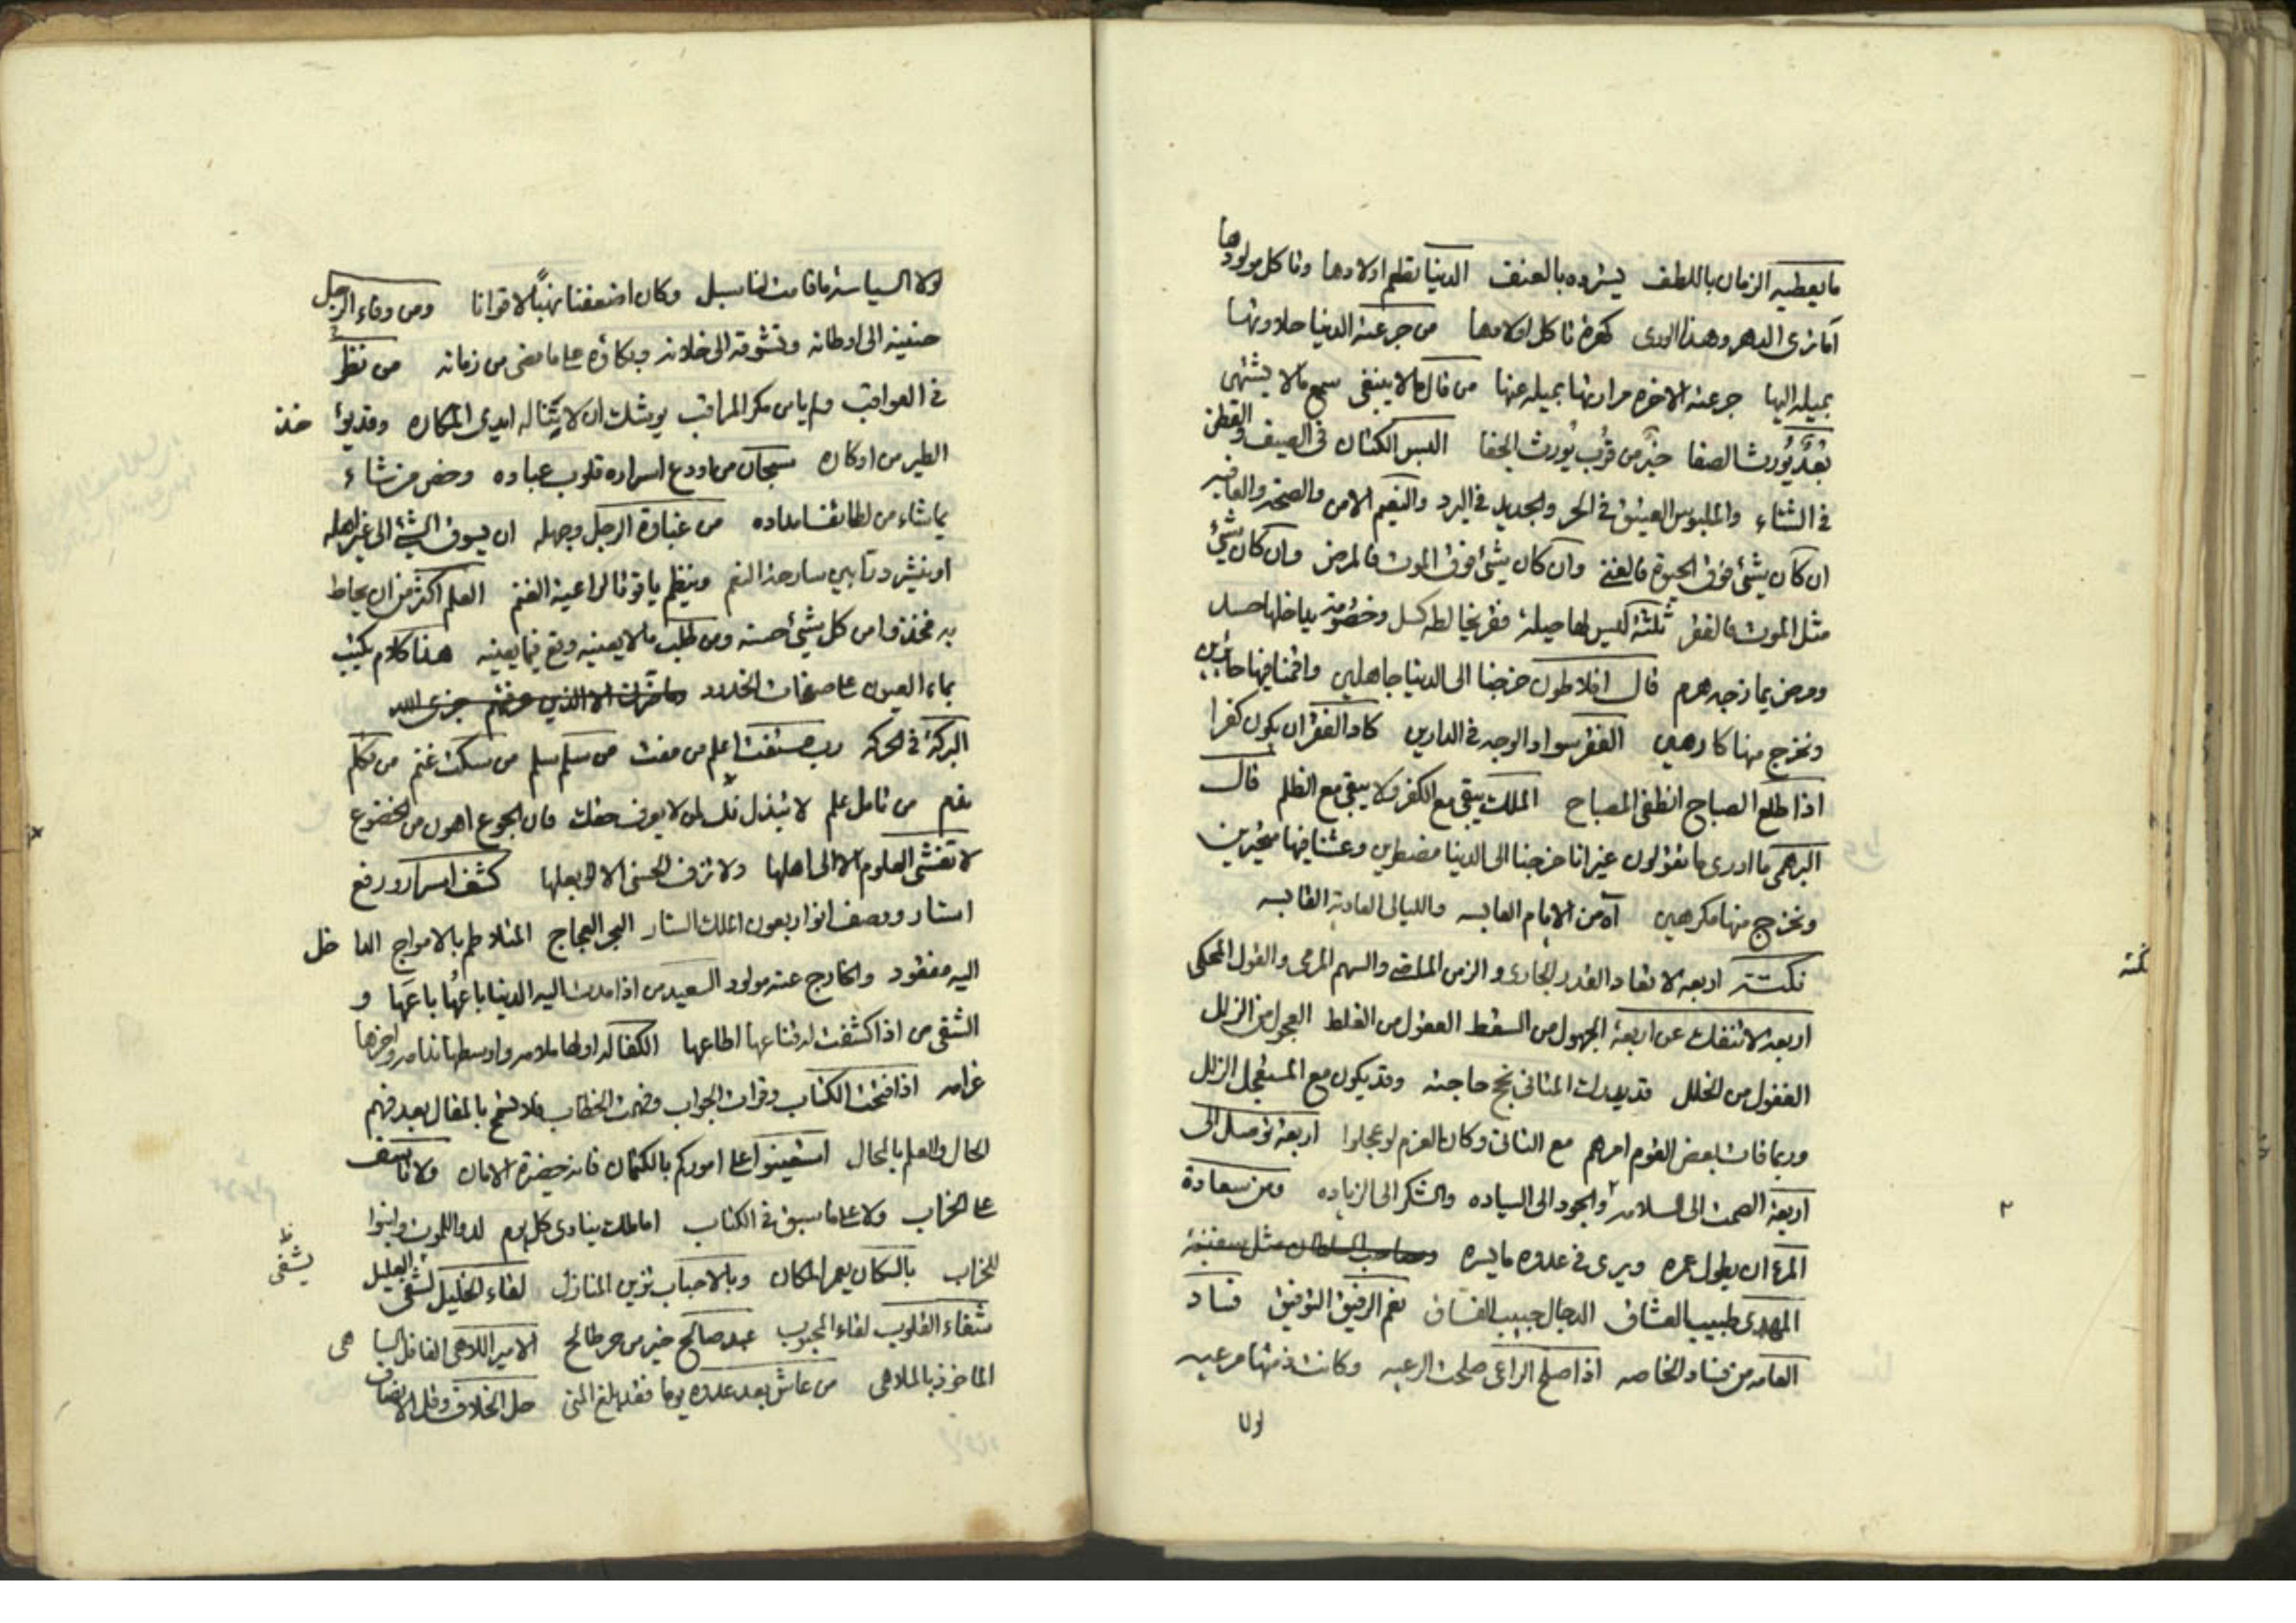 ما يعطيه الزمان باللطف يسترده بالعنف الدنيا تطعم اولادها وتاكل مولودها
اما ترى الدهر وهذا الورى كهرة تاكل اولادها من جرعته الدنيا حلاوتها
بميله اليها جرعته الاخره مرارتها بميله عنها من قال مالا ينبغى سمع مالا يشتهى
بُعدٌ يُورث الصفا خيرٌ من قُربٍ يُورث الجفا البس الكتان فى الصيف والقطن
فى الشتاء والملبوس العتيق فى الحر والجديد فى البرد والنعيم الامن والصحة والعافيه
ان كان شئ فوق الحيوة فالغنى وان كان شئ فوق الموت فالمرض وان كان شئ
مثل الموت فالفقر ثلثة ليس لها حيلة فقر يخالطه كسل وخصومة يداخلها حسد
ومرض يمازجه هرم قال افلاطون خرجنا الى الدنيا جاهلين واقمنا فيها حائرين
ونخرج منها كارهين الفقر سواد الوجه فى الدارين كاد الفقر ان يكون كفرا
اذا طلع الصباح انطفى المصباح الملك يبقى مع الكفر ولا يبقى مع الظلم قال
البرهمى ما ادرى ما تقولون غير انا خرجنا الى الدنيا مضطرين وعشنا فيها متحيرين
ونخرج منها مكرهين آه من الايام العابسه والليالى العادية
نكتة اربعة لا تعاد القدر الجارى والزمن الماضى والسهم المرمى والقول المحكى
نكتة
اربعة لا تنفك عن اربعة الجهول من السقط العقول من الغلط العجول من الزلل
الغفول من الخلل قد يدرك المتانى نجح حاجته وقد يكون مع المستعجل الزلل
وربما فات بعض القوم امرهم مع التانى وكان العزم لو عجلوا اربعة توصل الى
اربعة الصمت الى السلامه والجود الى السياده والشكر الى الزياده ومن سعادة
المرء ان يطول عمره ويرى فى عدوه ما يسره وصاحب السلطان مثل سفينة
المهدى طبيب العشاق الدجال حبيب الفساق نعم الرفيق التوفيق فساد
العامه من فساد الخاصه اذا صلح الراعى صلحت الرعيه وكانت ذمتها مرعيه
لولا
لولا السياسة ما قامت لنا سبل وكان اضعفنا نهبًا لاقوانا ومن وفاء الرجل
حنينه الى اوطانه وتشوقه الى خلانه وبكاؤه على ما مضى من زمانه من نظر
فى العواقب ولم يامن مكر المراقب يوشك ان لا تناله ايدى المكاره وقد يؤخذ
الطير من اوكاره سبحان من اودع اسراره قلوب عباده وخص من شاء
بما شاء من لطائف امداده من غباوة الرجل وجهله ان يسوق الشئ الى غير اهله
او ينثر درّا بين سارحة النعم وينظم ياقوتا لراعية الغنم العلم اكثر من ان يحاط
به فخذوا من كل شئ احسنه ومن طلب مالا يعنيه وقع فيما يعنيه هذا كلام يكتب
بماء العيون على صفحات الخدود
البركة فى الحركه رب مستفت اعلم من مفت من سلم سلم من سكت غنم من تكلم
ندم من تامل علم لا تبذل لمن لا يعرف حقك فان الجوع اهون من الخضوع
لا تفشى العلوم الا الى اهلها ولا تزف الحسنى الا الى بعلها كشف اسرار ورفع
استار ووصف انوار بعون الملك الستار البحر العجاج المتلاطم بالامواج الداخل
اليه مفقود والخارج عنه مولود السعيد من اذا مدت اليه الدنيا باعها باعها و
الشقى من اذا كشفت له قناعها اطاعها الكفالة اولها ملامه واوسطها ندامه واخرها
غرامه اذا فتحت الكتاب وقرات الجواب وفهمت الخطاب فلا تسمح بالمقال بعد فهم
الحال والعلم بالمحال استعينوا على اموركم بالكتمان فانه حضرة الامان ولا تاسف
على الخراب ولا على ما سبق فى الكتاب اما ملك ينادى كل يوم لدوا للموت وابنوا
للخراب بالسكان يعمر المكان وبالاحباب تزين المنازل لقاء الخليل يشفى العليل
يشفى
شفاء القلوب لقاء المحبوب عبد صالح خير من حر طالح الامير اللاهى الغافل الساهى
الماخوذ بالملاهى من عاش بعد عدوه يوما فقد بلغ المنى حل الخلاف وقل الانصاف